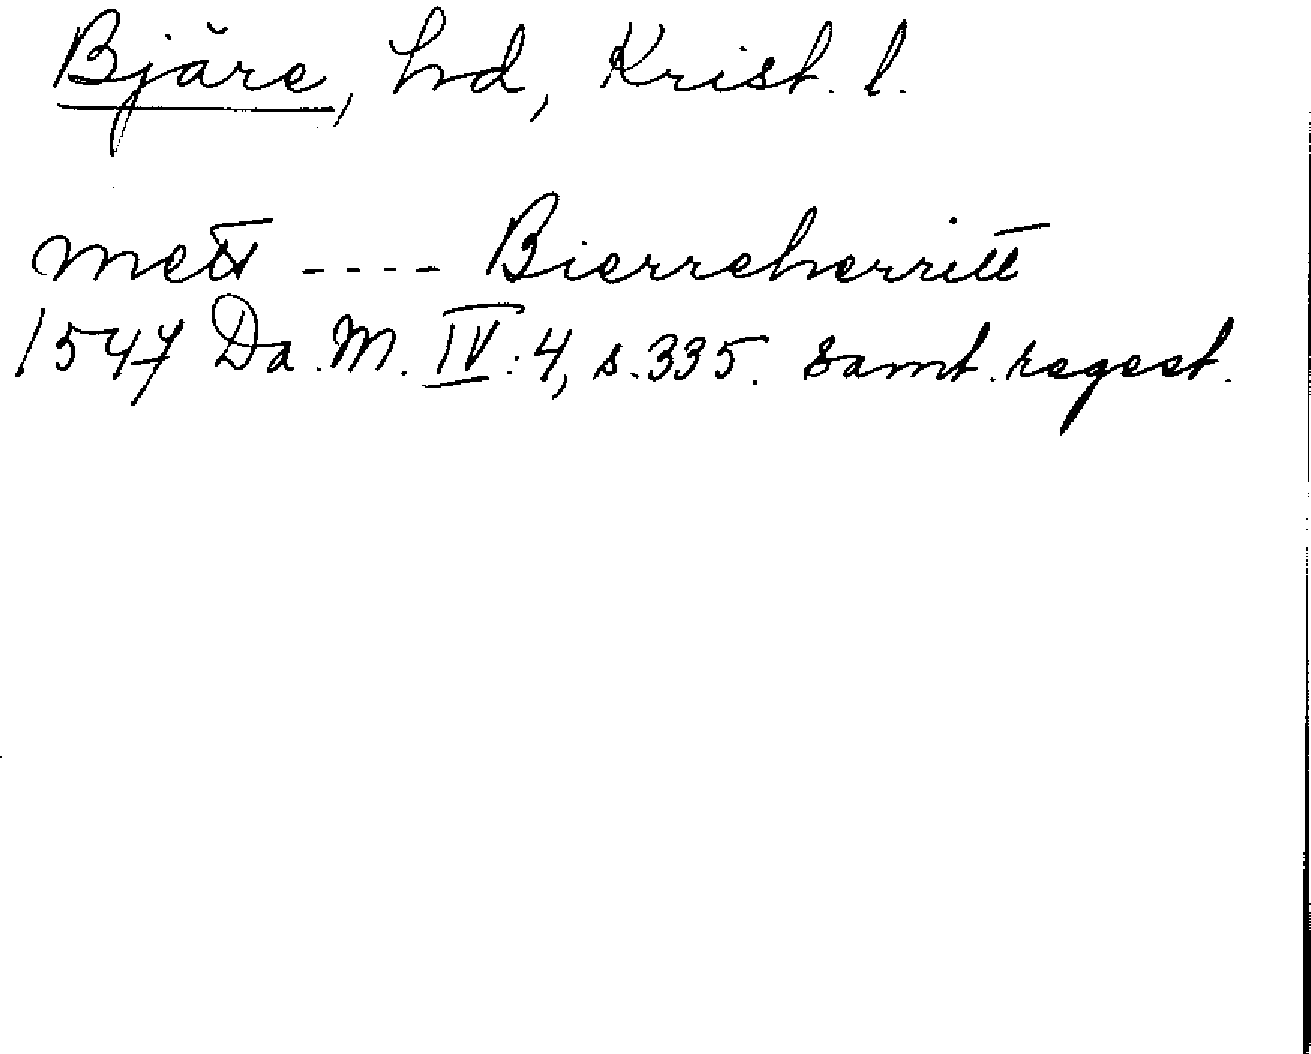 Bjäre, hd, Krist. l.
mett ---- Bierreherritt
1547 Da. M. IV:4, s. 335. samt. regest.